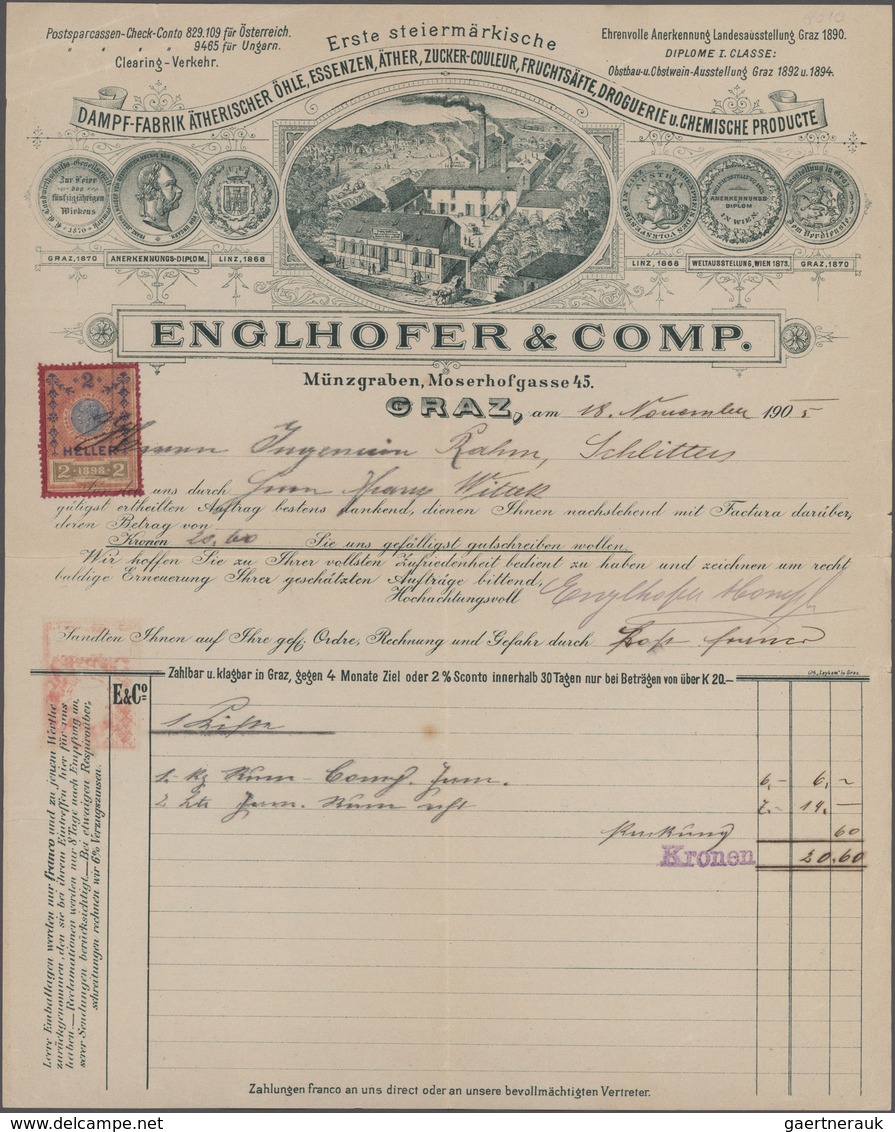 Postsparcassen-Check-Conto 829.109 für Österreich.
" " " 9465 für Ungarn.
Clearing-Verkehr.
Erste steiermärkische
Ehrenvolle Anerkennung Landesausstellung Graz 1890.
DIPLOME I. CLASSE:
Obstbau-u.Obstwein-Ausstellung Graz 1892 u. 1894.
DAMPF-FABRIK ÄTHERISCHER ÖHLE, ESSENZEN, ÄTHER, ZUCKER-COULEUR, FRUCHTSÄFTE, DROGUERIE u. CHEMISCHE PRODUCTE
Zur Feier
des
fünfzigjährigen
Wirkens
1870
AUSTRIA
ANERKENNUNGS-
DIPLOM
IN WIEN
GRAZ, 1870 ANERKENNUNGS-DIPLOM. LINZ, 1868
LINZ, 1868 WELTAUSSTELLUNG, WIEN 1873. GRAZ, 1870
ENGLHOFER & COMP.
Münzgraben, Moserhofgasse 45.
GRAZ, am 18. November 1905
2
HELLER
2 · 1898 · 2
Herrn Ingenieur Rahm, Schlitters
uns durch Herrn Franz Wittek
gütigst ertheilten Auftrag bestens dankend, dienen Ihnen nachstehend mit Factura darüber,
deren Betrag von
Kronen 20.60 Sie uns gefälligst gutschreiben wollen.
Wir hoffen Sie zu Ihrer vollsten Zufriedenheit bedient zu haben und zeichnen um recht
baldige Erneuerung Ihrer geschätzten Aufträge bittend,
Hochachtungsvoll Englhofer & Comp.
Sandten Ihnen auf Ihre gef. Ordre, Rechnung und Gefahr durch Post franco
Zahlbar u. klagbar in Graz, gegen 4 Monate Ziel oder 2% Sconto innerhalb 30 Tagen nur bei Beträgen von über K 20.—
Lith. „Leykam" in Graz.
E & Co
1 Kiste
1.- Kg Rum-Comp. Jam. 6,- 6,-
2 Ltr Jam. Rum echt 7.- 14.-
Packung 60
Kronen 20.60
Leere Emballagen werden nur franco und zu jenem Werthe
zurückgenommen, den sie bei ihrem Eintreffen hier für uns
haben.— Reclamationen werden nur 8 Tage nach Empfang un-
serer Sendungen berücksichtigt.— Bei etwaigen Respirüber,
schreitungen rechnen wir 6% Verzugszinsen.
Zahlungen franco an uns direct oder an unsere bevollmächtigten Vertreter.
www.delcampe.net
gaertnerauk